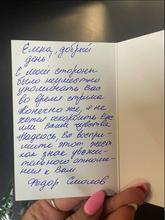 Елена, добрый
день!
С моей стороны
было неуместно
упоминать Вас
во время стрима
конечно же, я не
хотел оскорбить Вас
или ваши чувства.
Надеюсь Вы воспри-
мите этот жест
как знак уважи-
тельного отноше-
ния к Вам
Федор Смолов